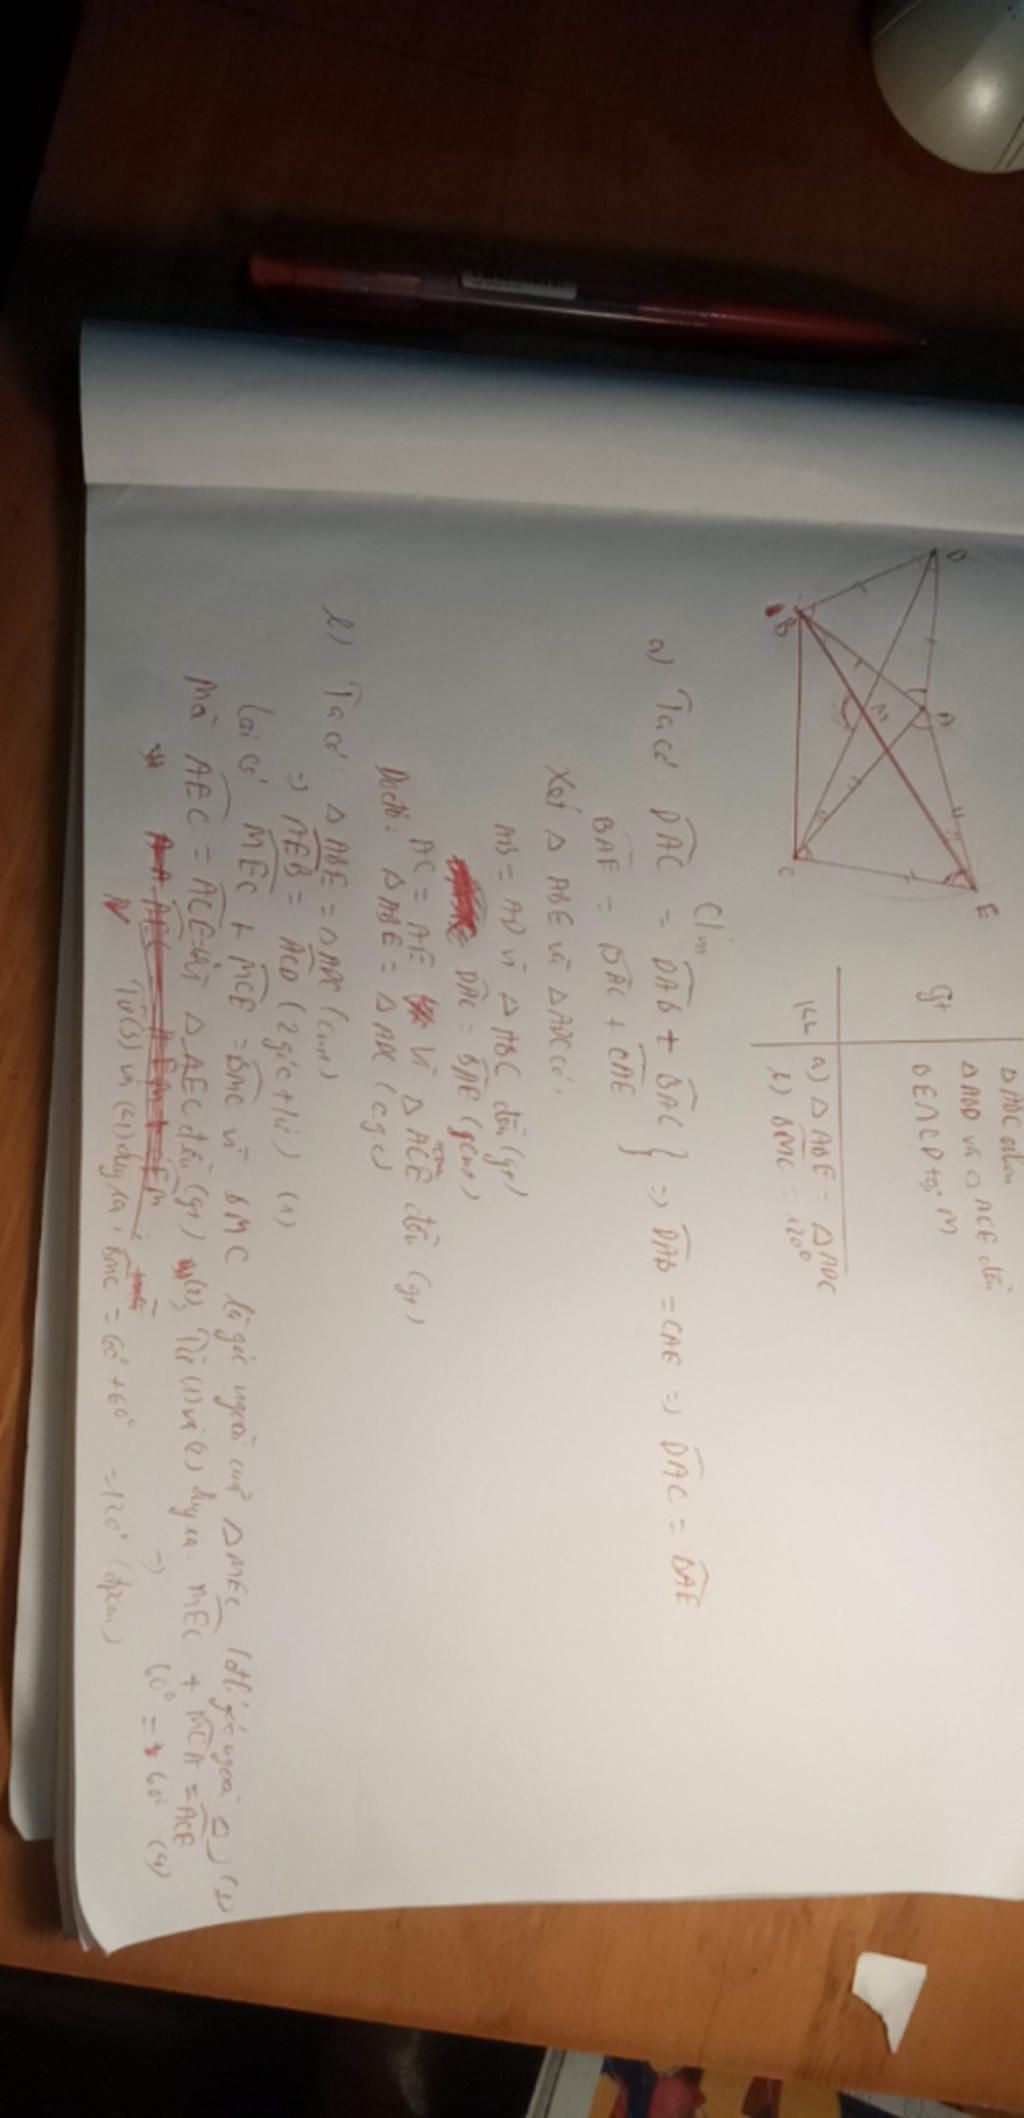 D
A
E
M
B
C
gt
ΔABD và ΔACE đều
BE∩CD tại M
KL
a) ΔABE = ΔADC
b) BMC = 120°
C/m
a) Ta có: DAC = DAB + BAC } => DAB = CAE => DAC = BAE
BAE = BAC + CAE
Xét Δ ABE và ΔADC có:
AB = AD vì Δ ABC đều (gt)
DAC = BAE (cmt)
AC = AE vì Δ ACE đều (gt)
Do đó: ΔABE = ΔADC (c.g.c)
b) Ta có: ΔABE = ΔADC (cmt)
=> AEB = ACD (2 góc t/ứ) (1)
Lại có MEC + MCE = BMC vì BMC là góc ngoài của ΔMEC (đ/l góc ngoài Δ)
Mà AEC = ACE vì Δ AEC đều (gt) (2), Từ (1) và (2) suy ra: MEC + MCA = ACE
=> 60° = 60° (4)
Từ (3) và (4) suy ra: BMC = 60° + 60° = 120° (đpcm)